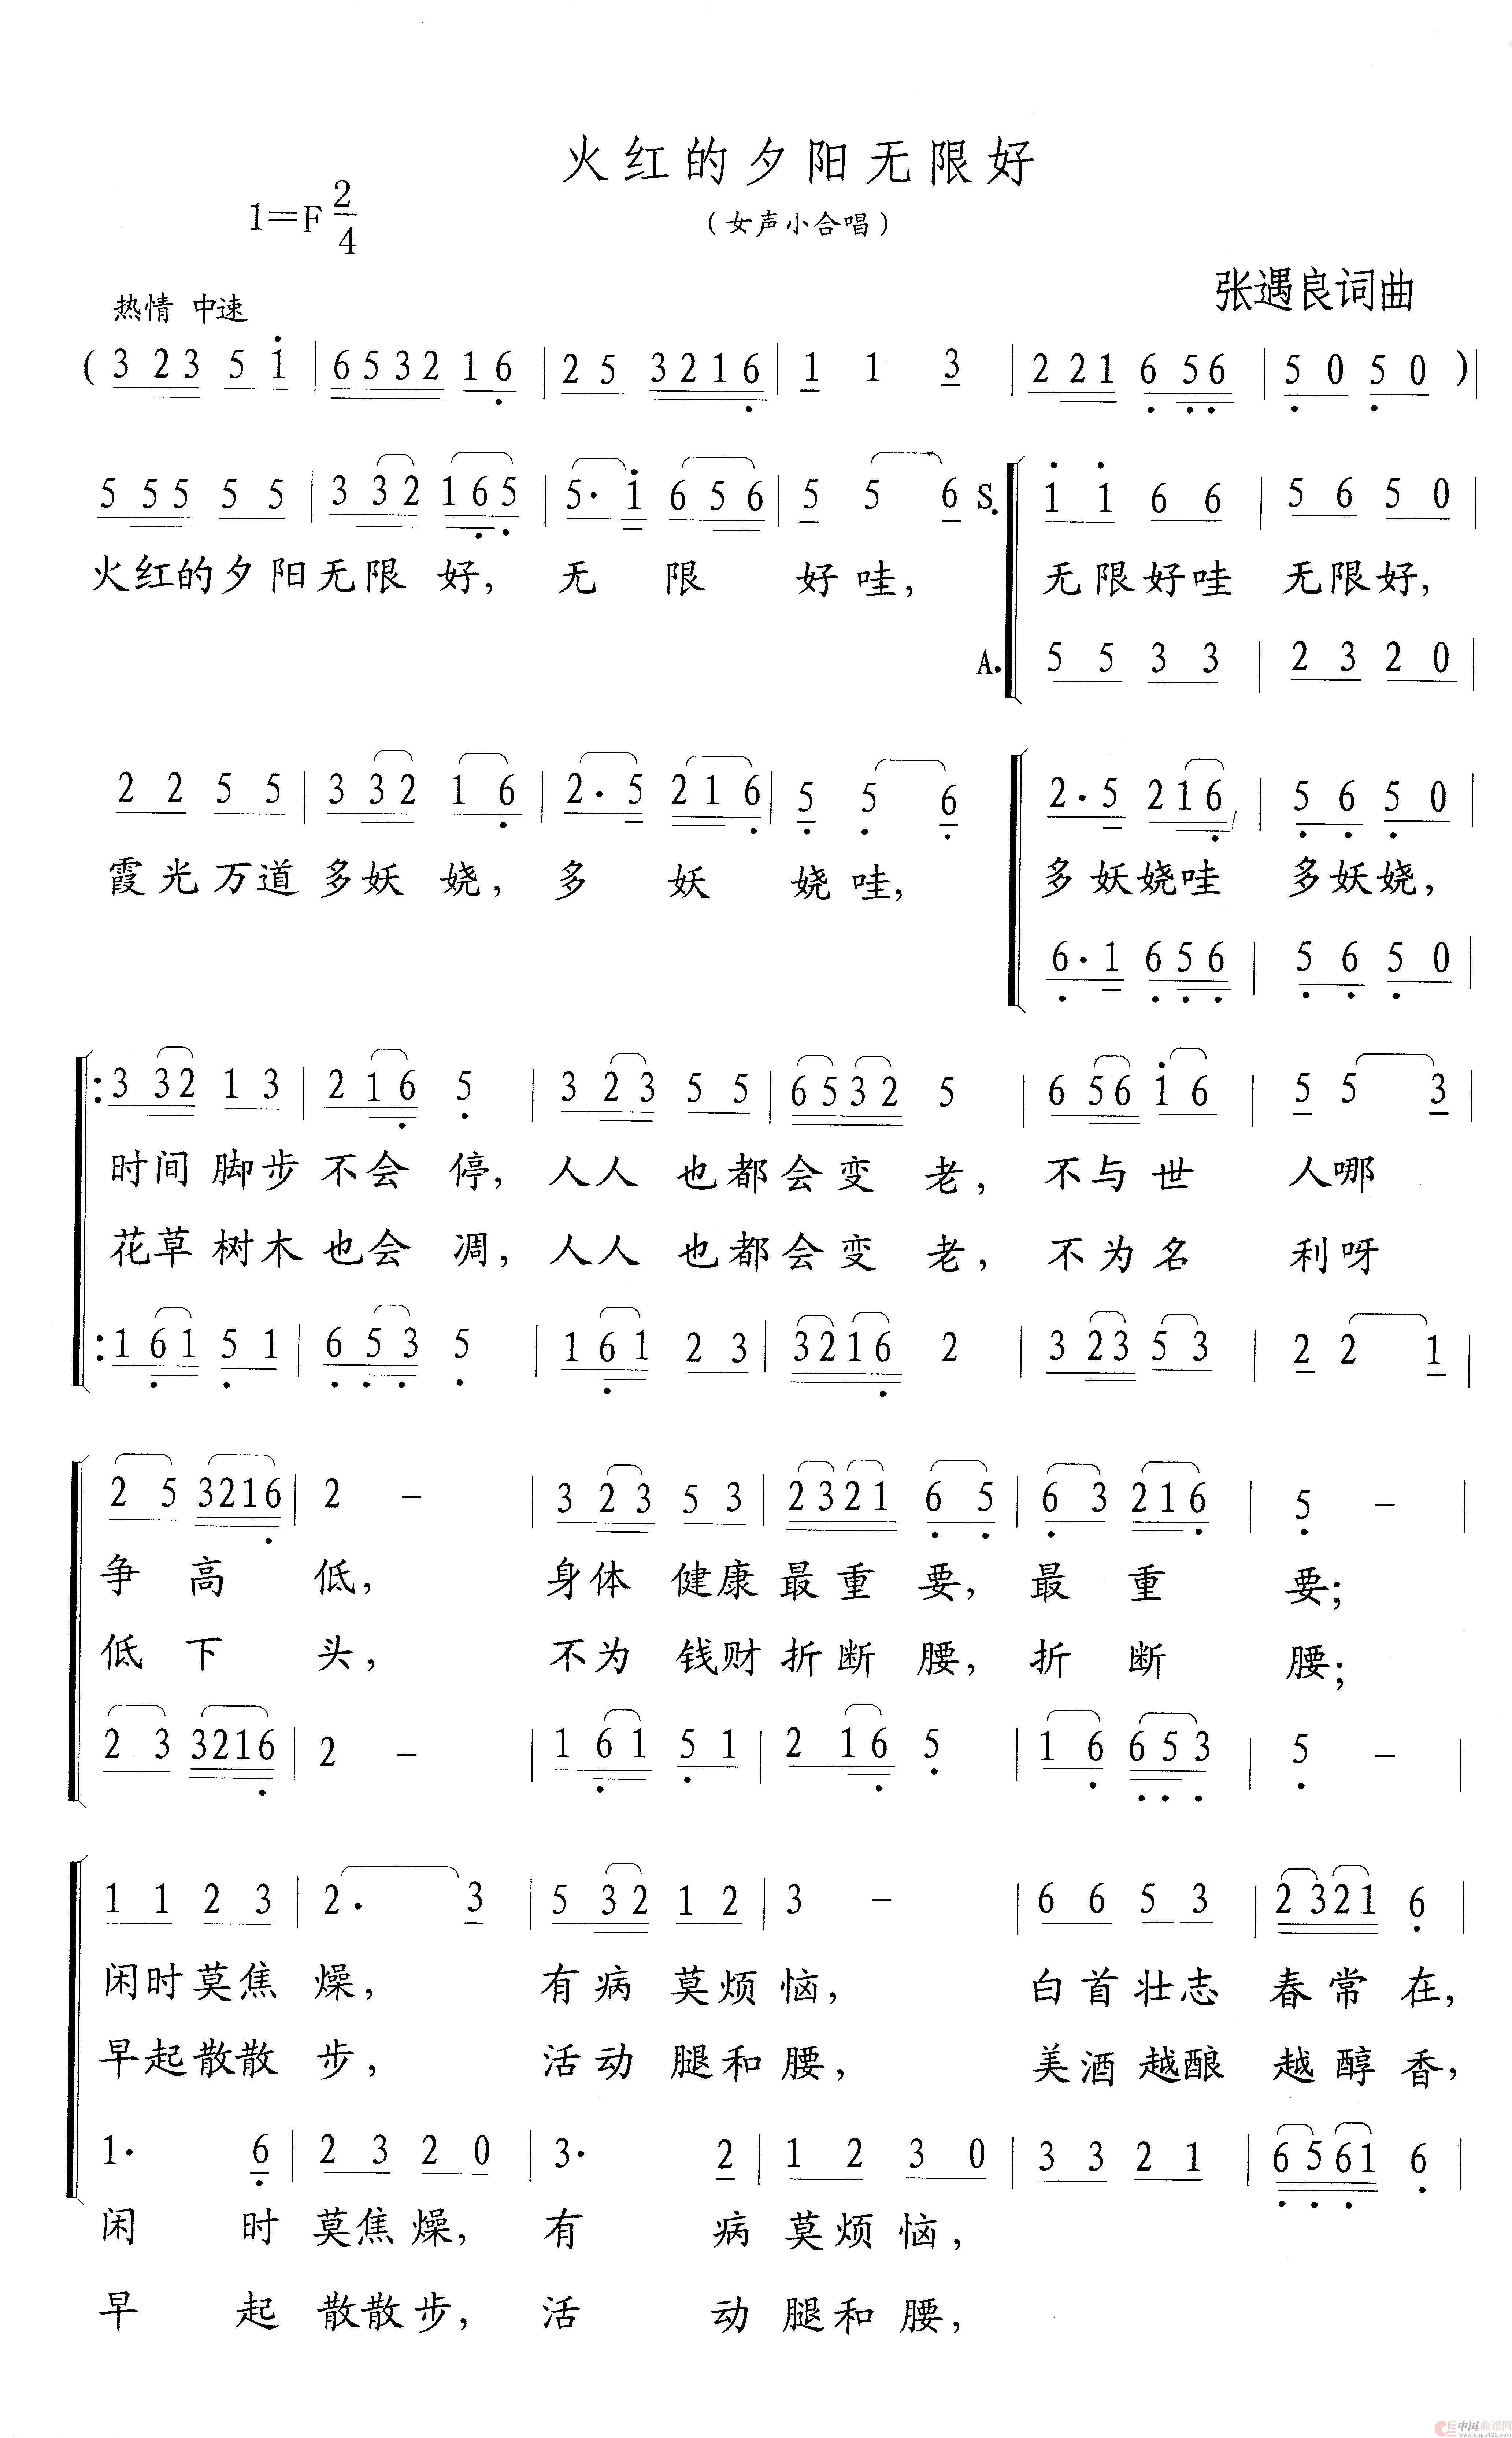 火红的夕阳无限好
1=F 2/4
（女声小合唱）
张遇良词曲
热情 中速
( 3 2 3 5 i | 6 5 3 2 1 6 | 2 5 3 2 1 6 | 1 1 3 | 2 2 1 6 5 6 | 5 0 5 0 ) |
5 5 5 5 5 | 3 3 2 1 6 5 | 5· i 6 5 6 | 5 5 6 S. i i 6 6 | 5 6 5 0 |
火红的夕阳无限 好， 无 限 好哇， 无限好哇 无限好，
A. 5 5 3 3 | 2 3 2 0 |
2 2 5 5 | 3 3 2 1 6 | 2· 5 2 1 6 | 5 5 6 2· 5 2 1 6 | 5 6 5 0 |
霞光万道多妖 娆， 多 妖 娆哇， 多妖娆哇 多妖娆，
6· 1 6 5 6 | 5 6 5 0 |
: 3 3 2 1 3 | 2 1 6 5 | 3 2 3 5 5 | 6 5 3 2 5 | 6 5 6 i 6 | 5 5 3 |
时间 脚步 不会 停， 人人 也都会变 老， 不与世 人哪
花草 树木 也会 凋， 人人 也都会变 老， 不为名 利呀
: 1 6 1 5 1 | 6 5 3 5 | 1 6 1 2 3 | 3 2 1 6 2 | 3 2 3 5 3 | 2 2 1 |
2 5 3 2 1 6 | 2 － | 3 2 3 5 3 | 2 3 2 1 6 5 | 6 3 2 1 6 | 5 － |
争 高 低， 身体 健康最重 要， 最 重 要；
低 下 头， 不为 钱财折断 腰， 折 断 腰；
2 3 3 2 1 6 | 2 － | 1 6 1 5 1 | 2 1 6 5 | 1 6 6 5 3 | 5 － |
1 1 2 3 | 2· 3 | 5 3 2 1 2 | 3 － | 6 6 5 3 | 2 3 2 1 6 |
闲时莫焦 燥， 有病 莫烦恼， 白首壮志 春常在，
早起散散 步， 活动 腿和腰， 美酒越酿 越醇香，
1· 6 | 2 3 2 0 | 3· 2 | 1 2 3 0 | 3 3 2 1 | 6 5 6 1 6 |
闲 时 莫焦燥， 有 病 莫烦恼，
早 起 散散步， 活 动 腿和腰，
中国曲谱网
www.qupu123.com